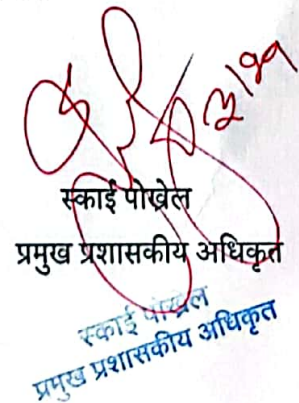 स्काई पोख्रेल
प्रमुख प्रशासकीय अधिकृत
स्काई पोख्रेल
प्रमुख प्रशासकीय अधिकृत